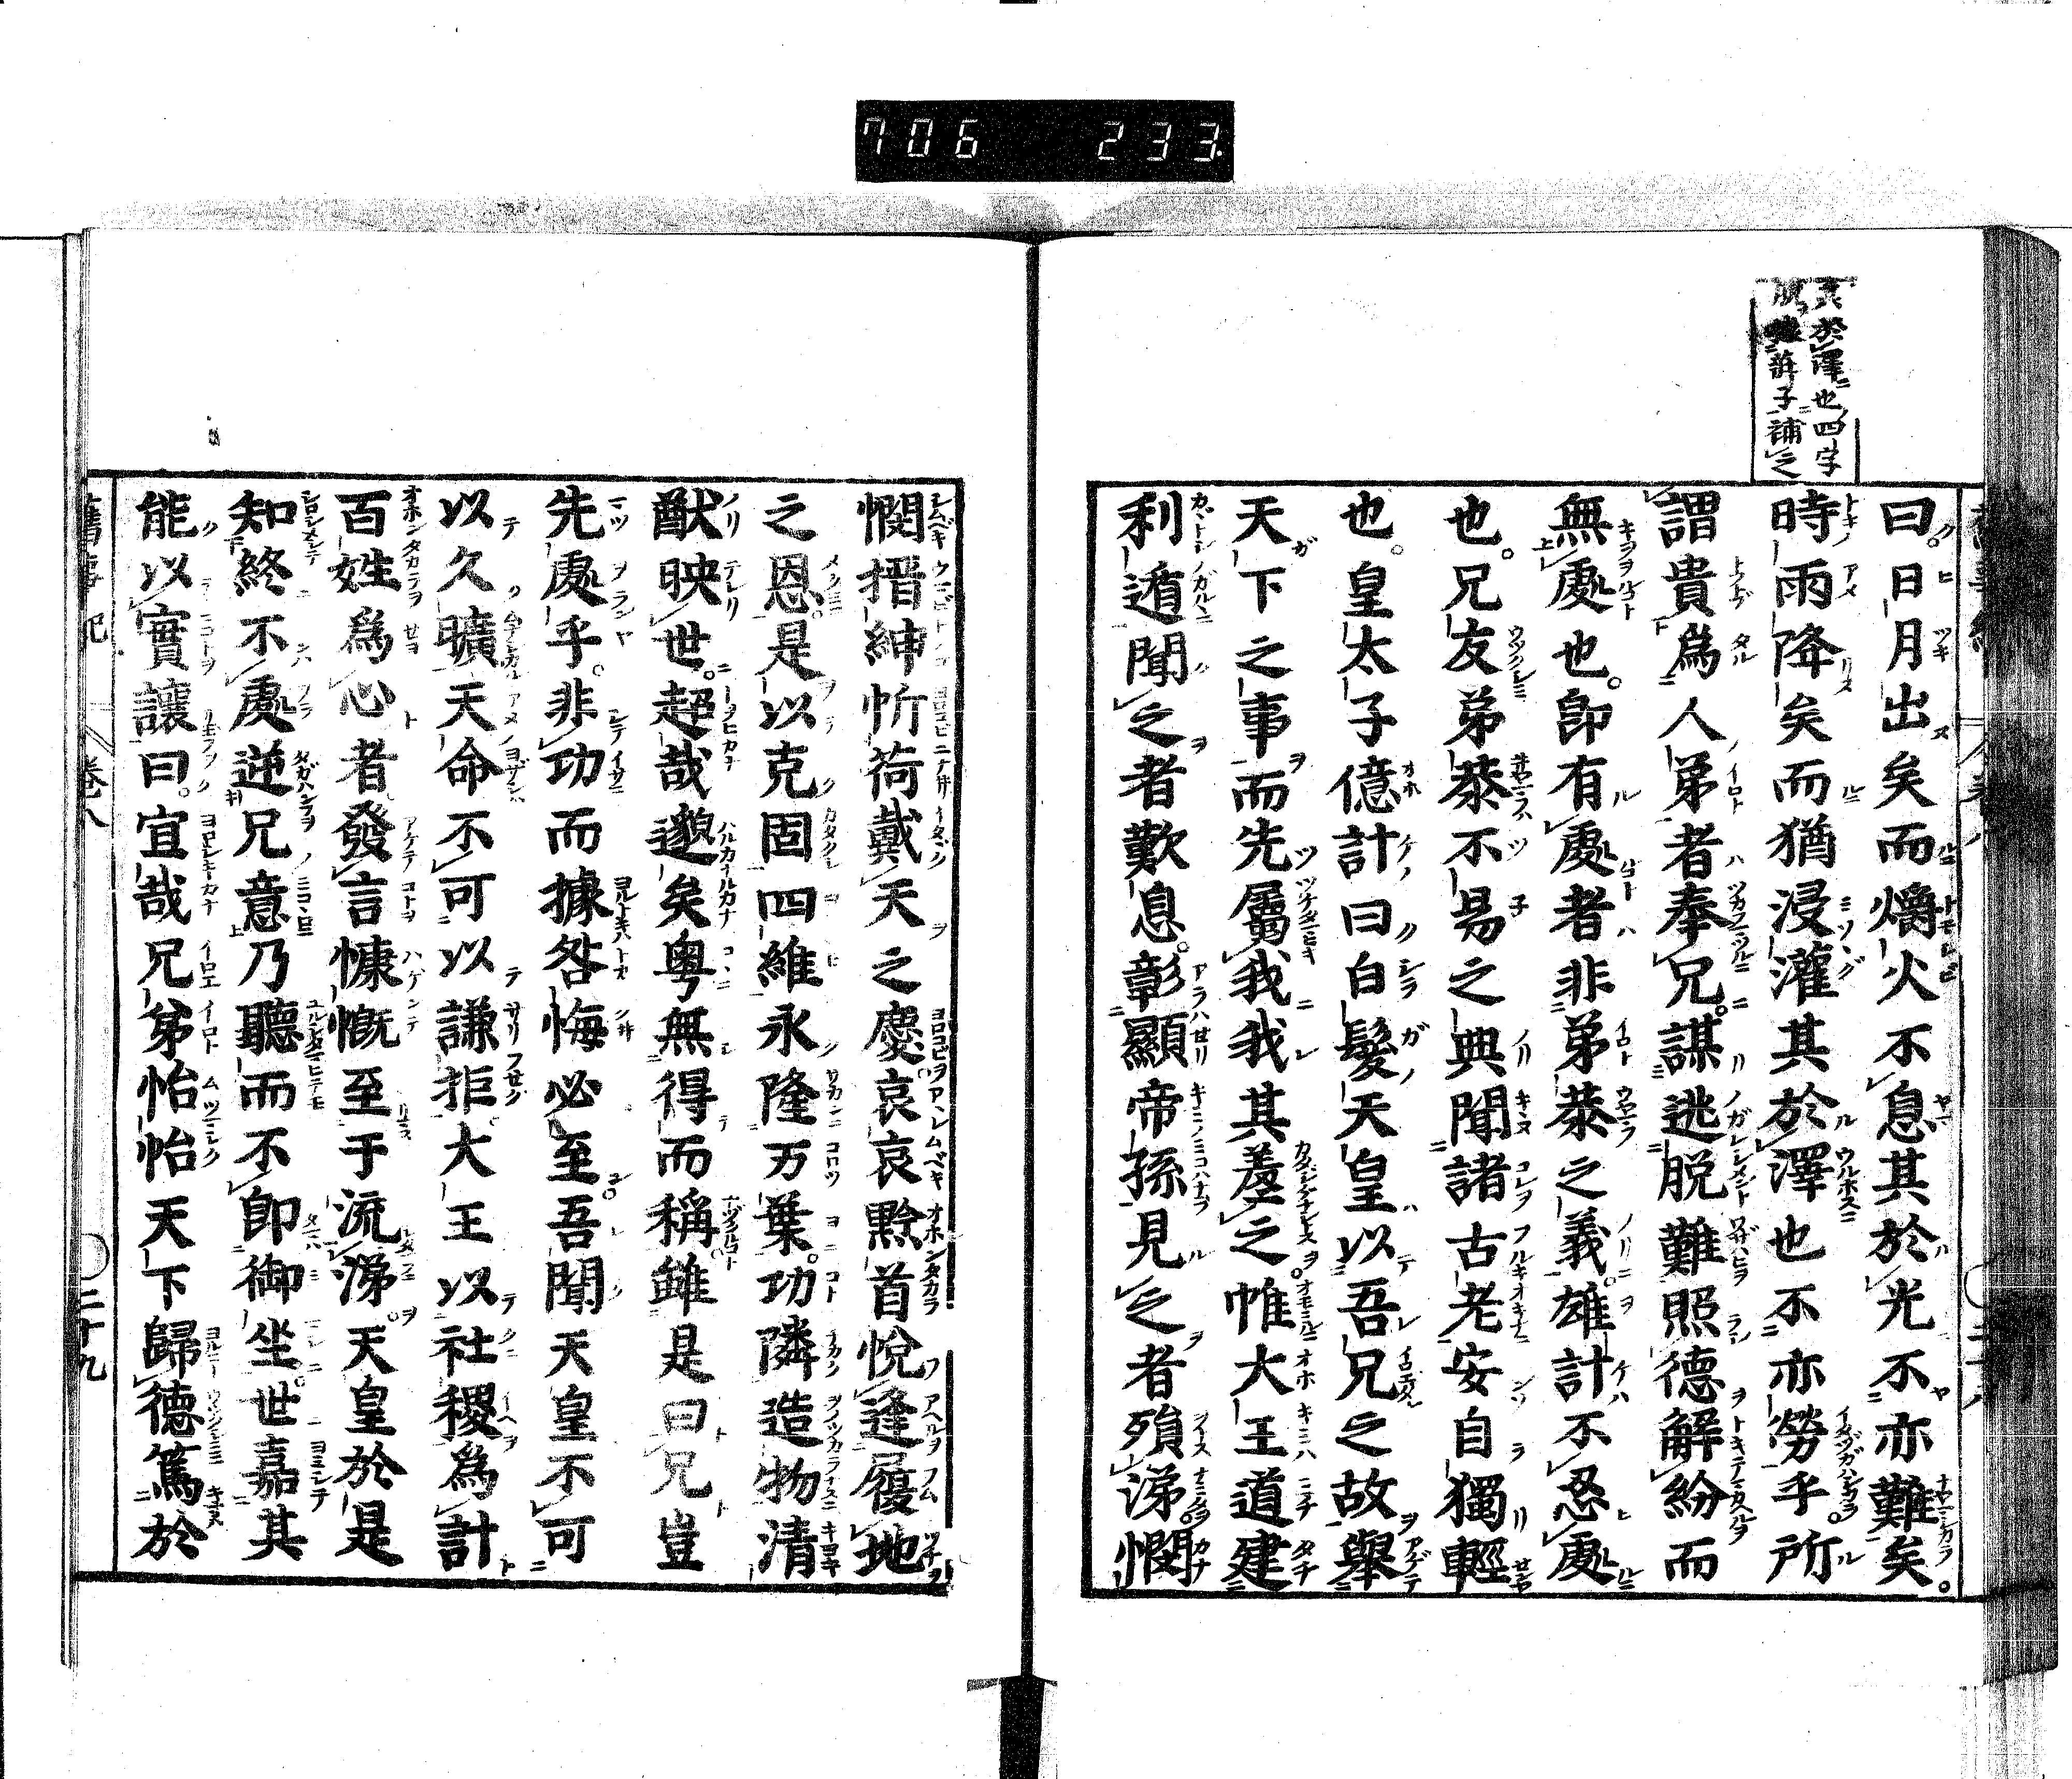 706 233
其於澤也四字
脱
曰日月出矣而爝火不息其於光不亦難矣。
時雨降矣而猶浸灌其於澤也不亦勞乎。所
謂貴爲人弟者奉兄。謀逃脱難照德解紛而
無處也。即有處者非弟恭之義。雄計不忍處
也。兄友弟恭不易之典聞諸古老安自獨輕
也。皇太子億計曰白髮天皇以吾兄之故舉
天下之事而先屬我我其羞之。惟大王道建
利遁聞之者歎息。彰顯帝孫見之者殞涕。憫
憫搢紳忻荷戴天之慶。哀哀黔首悅逢履地
之恩。是以克固四維永隆万葉。功隣造物清
猷映世。超哉邈矣粤無得而稱。雖是曰兄豈
先處乎。非功而據咎悔必至。吾聞天皇不可
以久曠天命不可以謙拒。大王以社稷爲計
百姓爲心者發言慷慨至于流涕。天皇於是
知終不處逆兄意乃聽而不即御坐。世嘉其
能以實讓曰。宜哉兄弟怡怡天下歸德篤於
舊事紀 卷八 二十九